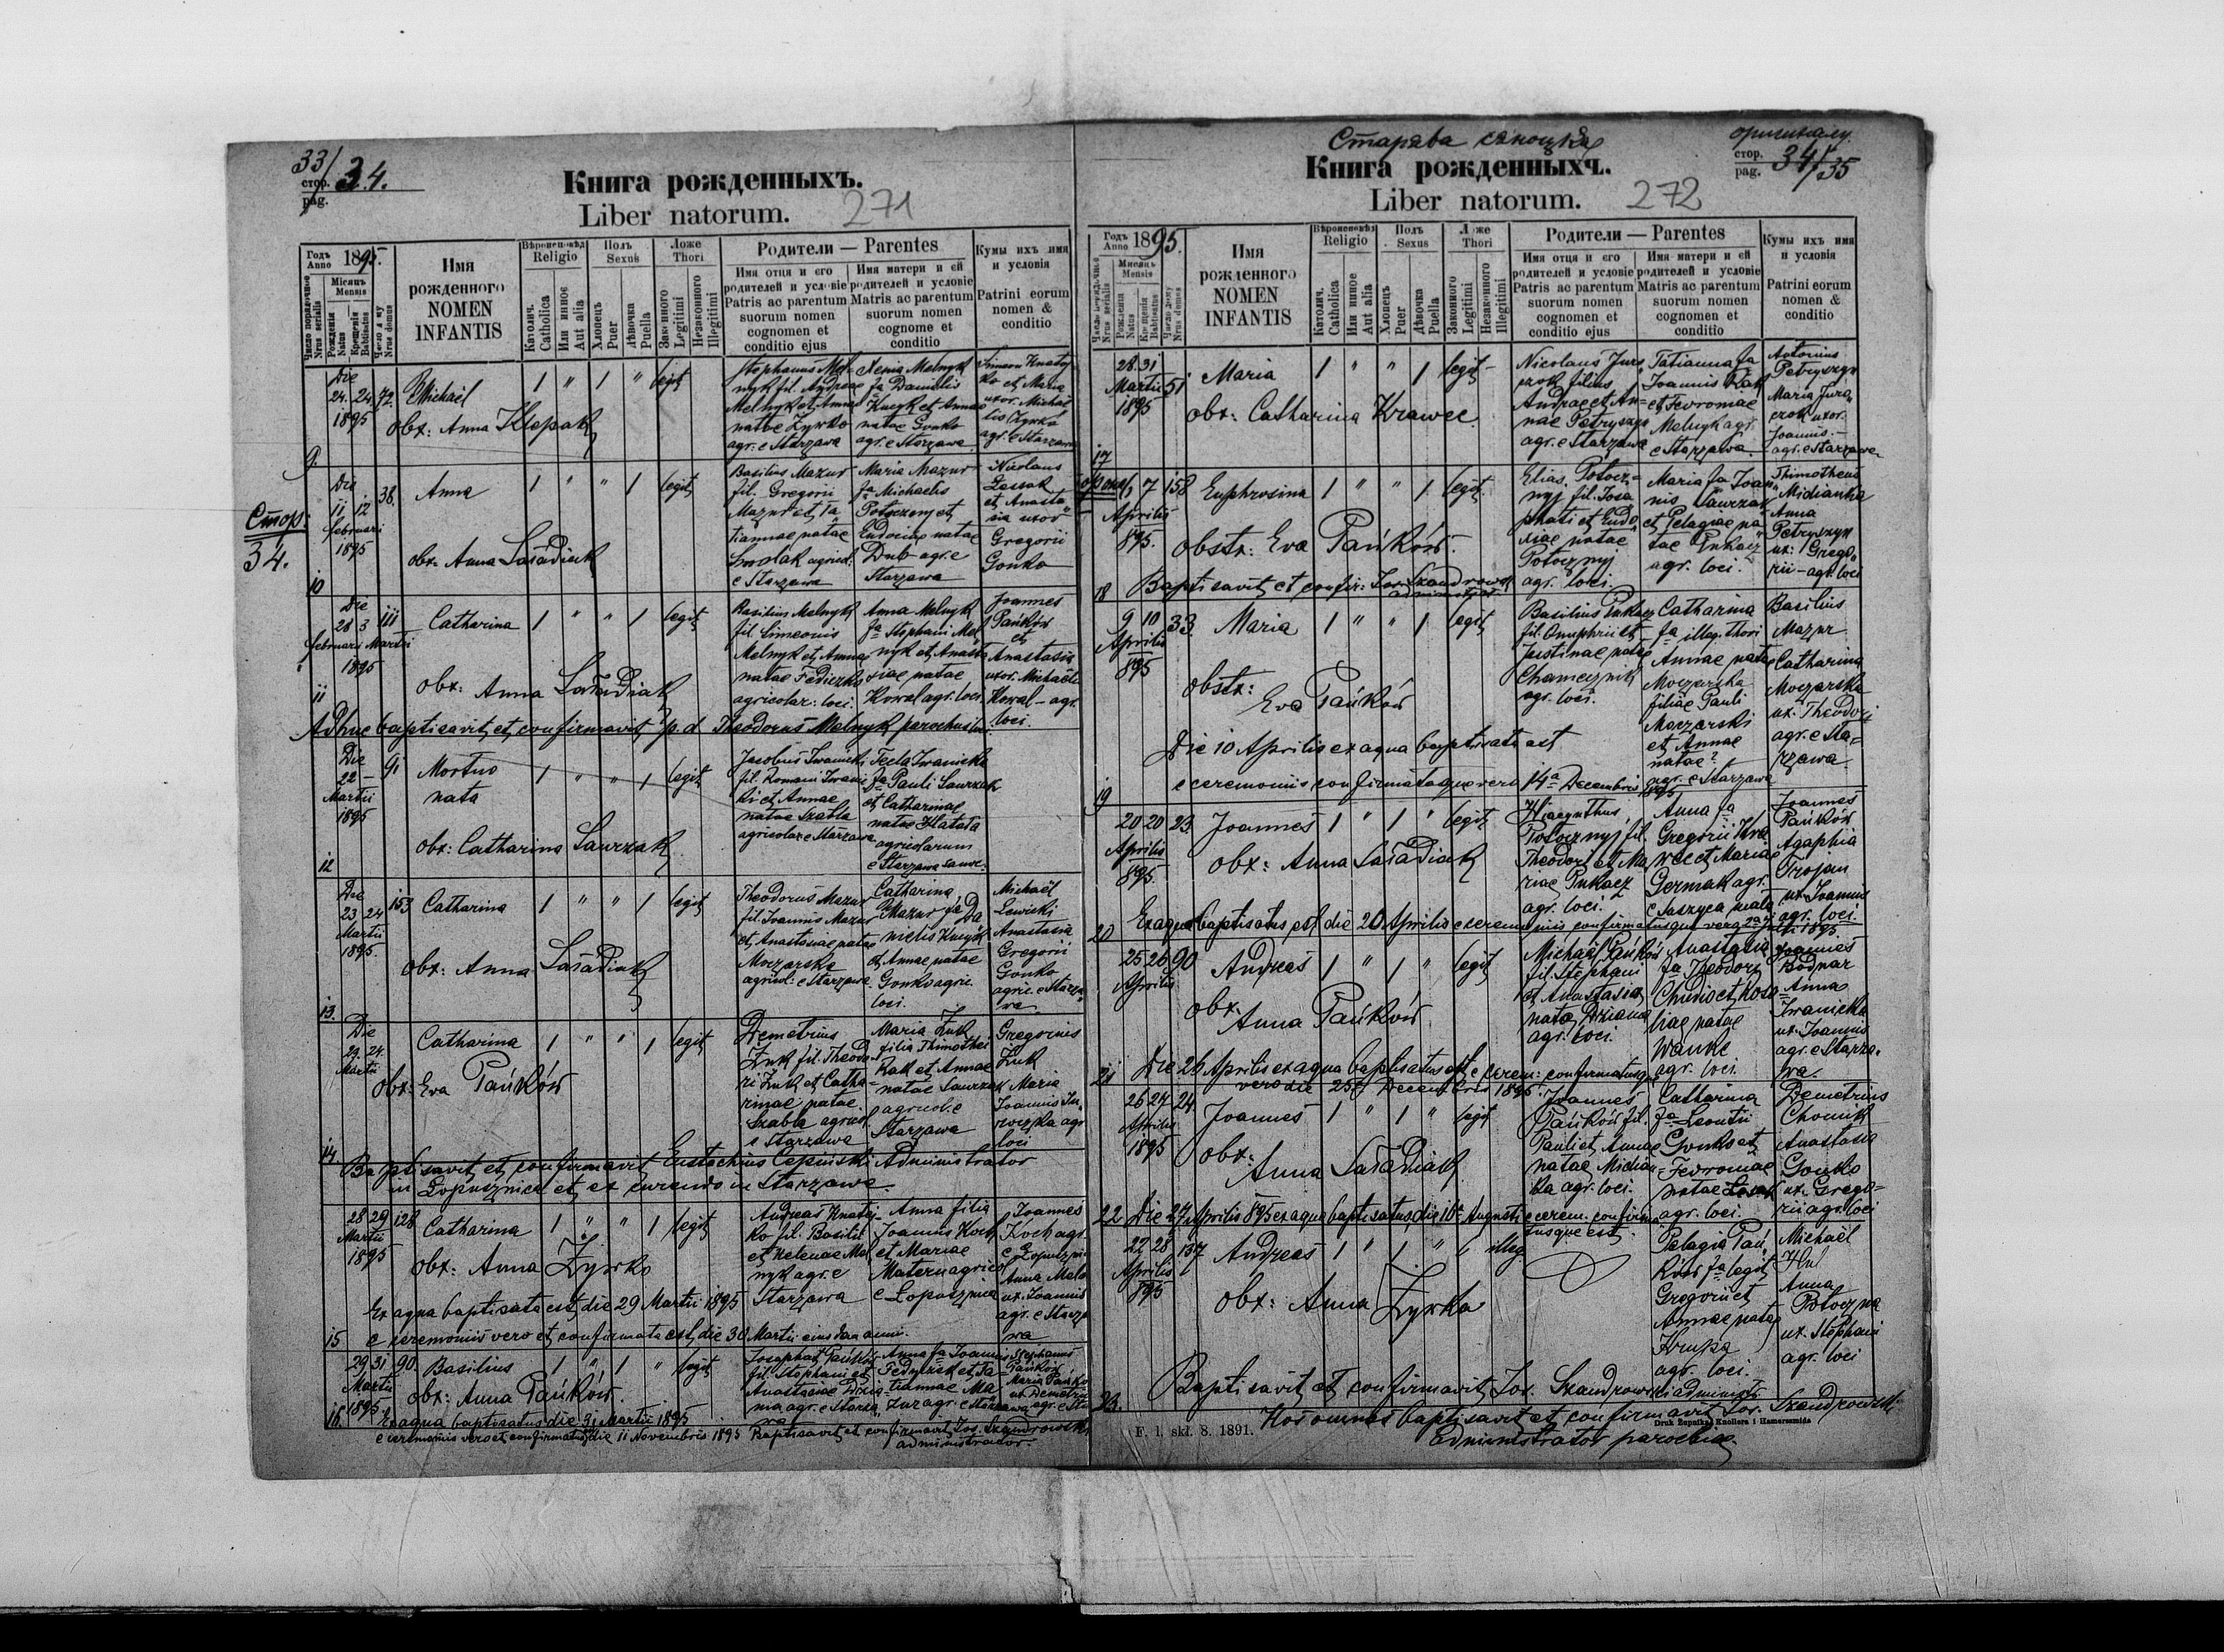 33/34.
стор.
pag.
Книга рожденныхъ.
Liber natorum. 271
Годъ Anno 1895.
Число порядочное Nrus serialis
Місяцъ Mensis
Рожденія Natus
Крещенія Babtisatus
Число дому Nrus domus
Имя рожденного
NOMEN INFANTIS
Вѣроисповѣд Religio
Католич. Catholica
Или инное Aut alia
Полъ Sexus
Хлопецъ Puer
Дѣвочка Puella
Ложе Thori
Законного Legitimi
Незаконного Illegitimi
Родители — Parentes
Имя отца и его родителей и условіе
Patris ac parentum suorum nomen cognomen et conditio ejus
Имя матери и ей родителей и условіе
Matris ac parentum suorum nomen cognome et conditio
Кумы ихъ имя и условія
Patrini eorum nomen & conditio
9.
Die
24. 24. 72.
1895
Michaël 1 " 1 " legit
obx: Anna Klepak
Stephanus Mel-
nyk fil. Andreae
Melnyk et Annae
natae Zyrko
agr. e Starzawa
Xenia Melnyk
fa Danielis
Kneyk et Annae
natae Gonko
agr. e Starzawa
Simeon Knaty
ko et Maria
uxor. Michaë
lis Zyrko
agr. e Starzawa
Стор:
34.
10
Die
11. 12. 38.
februari
1895
Anna 1 " " 1 legit
obx. Anna Sasadiak
Basilius Mazur
fil. Gregorii
Mazur et Ta
tiannae natae
Smolak agricol.
e Starzawa
Maria Mazur
fa Michaelis
Potoczny et
Eudociae natae
Dub agr. e
Starzawa
Nicolaus
Lessak
et Anasta
sia uxor
Gregorii
Gonko
11
Die
28 3 111
februari Martii
1895
Catharina 1 " " 1 legit
obx: Anna Sasadiak
Basilius Melnyk
fil. Simeonis
Melnyk et Annae
natae Fedierko
agricolar: loci.
Anna Melnyk
fa Stephani Mel
nyk et Anasta
siae natae
Kowal agr. loci
Joannes
Pańków
et
Anastasia
uxor. Michaëlis
Kowal - agr.
loci.
Adhuc baptisavit et confirmavit p. d. Theodorus Melnyk parochus loci.
12
Die
22 — 91
Martii
1895
Mortuo
nata 1 " " 1 legit
obx: Catharina Sawrzak
Jacobus Iwanicki
fil. Romani Iwanic
ki et Annae
natae Szabla
agricolar e Starzawa
Tecla Iwanicka
fa Pauli Sawrzak
et Catharinae
natae Hatala
agricolarum
e Starzawa
13.
Die
23 24 153
Martii
1895.
Catharina 1 " " 1 legit
obx: Anna Sasadiak
Theodorus Mazur
fil. Joannis Mazur
et Anastasiae natae
Moczarska
agricol: e Starzawa
Catharina
Mazur fa Da
nielis Kneyk
et Annae natae
Gonko agric.
loci.
Michaël
Lewicki
Anastasia
Gregorii
Gonko
agric. e Starza
wa
14.
Die
29. 24.
Martii
Catharina 1 " " 1 legit
obx: Eva Pańków
Demetrius
Żuk fil. Theodo
ri Żuk et Catha-
rinae natae
Szabla agricol.
e Starzawa
Maria Żuk
filia Thimothei
Rak et Annae
natae Sawrzak
agricol. e
Starzawa
Gregorius
Żuk
Maria
Joannis Ju
roczka agr
loci
Baptisavit et confirmavit Eustachius Cepiński Administrator
in Łopusznica et ex currendo in Starzawa.
15
28 29 128
Martii
1895
Catharina 1 " " 1 legit
obx: Anna Zyrko
Andreas Knatej
ko fil. Basilii
et Helenae Mel
nyk agr. e
Starzawa
Anna filia
Joannis Koch
et Mariae
Matern agricol
e Łopusznica
Joannes
Koch agr.
e Łopuszni
Anna Mela
ux. Joannis
agr. e Starza
wa
Ex aqua baptisata est die 29 Martii 1895
e ceremoniis vero et confirmata est die 30 Martii eiusdem anni.
16.
29 31 90
Martii
1895
Basilius 1 " 1 " legit
obx: Anna Pańków.
Josaphat Pańków
fil. Stephani et
Anastasiae Dzia
ma agr. e Starza
wa
Anna fa Joannis
Fedyczko et Ta-
tiannae Ma
zur agr. e Starzawa
Stephanus
Pańków
Maria Pańko
ux. Demetrii
agr. e Sta
Ex aqua baptisatus die 31 Martii 1895
e ceremoniis vero et confirmatus die 11 Novembris 1895 Baptisavit et confirmavit Jos. Szandrowski
administrator
Старява сяноцкая
оригиналу
стор. pag. 34/35
Книга рожденныхч.
Liber natorum. 272
Годъ Anno 1895.
Число порядочное Nrus serialis
Мисяцъ Mensis
Рожденія Natus
Крещенія Babtisatus
Число дому Nrus domus
Имя рожденного
NOMEN INFANTIS
Вѣроисповѣд Religio
Католич. Catholica
Или инное Aut alia
Полъ Sexus
Хлопецъ Puer
Дѣвочка Puella
Ложе Thori
Законного Legitimi
Незаконного Illegitimi
Родители — Parentes
Имя отца и его родителей и условіе
Patris ac parentum suorum nomen cognomen et conditio ejus
Имя матери и ей родителей и условіе
Matris ac parentum suorum nomen cognomen et conditio
Кумы ихъ имя и условія
Patrini eorum nomen & conditio
17
28. 31
Martii 51
1895
Maria 1 " " 1 legit -
obx: Catharina Krawec
Nicolaus Jura
czok filius
Andreae et An-
nae Petryszyn
agr. e Starzawa
Tatianna fa
Joannis Rak
et Fevroniae
Melnyk agr.
e Starzawa.
Antonius
Petryszyn
Maria Jura
czok uxor.
Joannis -
agr. e Starzawa
18
7 158
Aprilis
895.
Euphrosina 1 " " 1 legit.
obstx: Eva Pańków.
Elias. Potocz-
nyj fil. Josa
phati et Eudo
xiae natae
Potocznyj
agr. loci.
Maria fa Joan
nis Sawrzak
et Pelagiae na
tae Pukacz
agr. loci.
Thimotheus
Midianka
Anna
Petryszyn
ux: Grego
rii - agr. loci
Baptisavit et confir: Jos. Szandrowski
administrator
19
9 10 33.
Aprilis
895
Maria 1 " " 1 legit
obstx:
Eva Pańków
Basilius Pukacz
fil. Onuphrii et
Justinae natae
Chamcznik
agr. loci.
Catharina
fa illeg. thori
Annae natae
Moczarska
filiae Pauli
Moczarski
et Annae
natae?
agr. e Starzawa
Basilius
Mazur
Catharina
Moczarska
ux. Theodori
agr. e Sta=
rzawa.
Die 10 Aprilis ex aqua baptisata est
e ceremoniis confirmataque vero 14a Decembris 1895
20
20 20 23.
Aprilis
895.
Joannes 1 " 1 " legit
obx: Anna Sasadiak
Hiacynthus
Potocznyj fil.
Theodori et Ma
riae Pukacz
agr. loci.
Anna fa
Gregorii Kra
wec et Mariae
Germak agr.
e Saszyca mala
Joannes
Pańków
Agaphia
Trojan
ux. Joannis
agr. loci.
Ex aqua baptisatus est die 20 Aprilis e ceremoniis confirmatusque vero 2a 1895
21
25 26 90
Aprilis
Andreas 1 " 1 " legit
obx.
Anna Pańków
Michaël Pańków
fil. Stephani
et Anastasiae
natae Dziama
agr. loci.
Anastasia
fa Theodori
Chudio et Rosa
liae natae
Wanke
agr. loci.
Joannes
Bodnar
Anna
Iwanicka
ux. Joannis
agr. e Starza.
wa.
Die 26 Aprilis ex aqua baptisatus est e cerem: confirmatusq.
vero die 25 Decembris 1895.
22
26 27 24
Aprilis
1895
Joannes 1 " 1 " legit
obx:
Anna Sasadiak
Joannes
Pańków fil.
Pauli et Annae
natae Midian=
ka agr. loci.
Catharina
fa Leontii
Gonko et
Fevroniae
natae
agr. loci.
Demetrius
Chomik
Anastasia
Gonko
ux. Grego=
rii agr. loci
Die 27 Aprilis 895 ex aqua baptisatus, die 10a Augusti e cerem. confirma
tusque est.
23.
22 28 137
Aprilis
895
Andreas 1 " 1 " illeg
obx: Anna Zyrko
Pelagia Pań
ków fa legit
Gregorii et
Annae natae
Krupa
agr. loci.
Michaël
Anna
Potoczna
ux. Stephani
agr. loci
Baptisavit et confirmavit Jos. Szandrowski administr.
Hos omnes baptisavit et confirmavit Jos. Szandrowski
Administrator parochiae
F. 1. skł. 8. 1891.
Druk Żupnika, Knollera i Hamerszmida